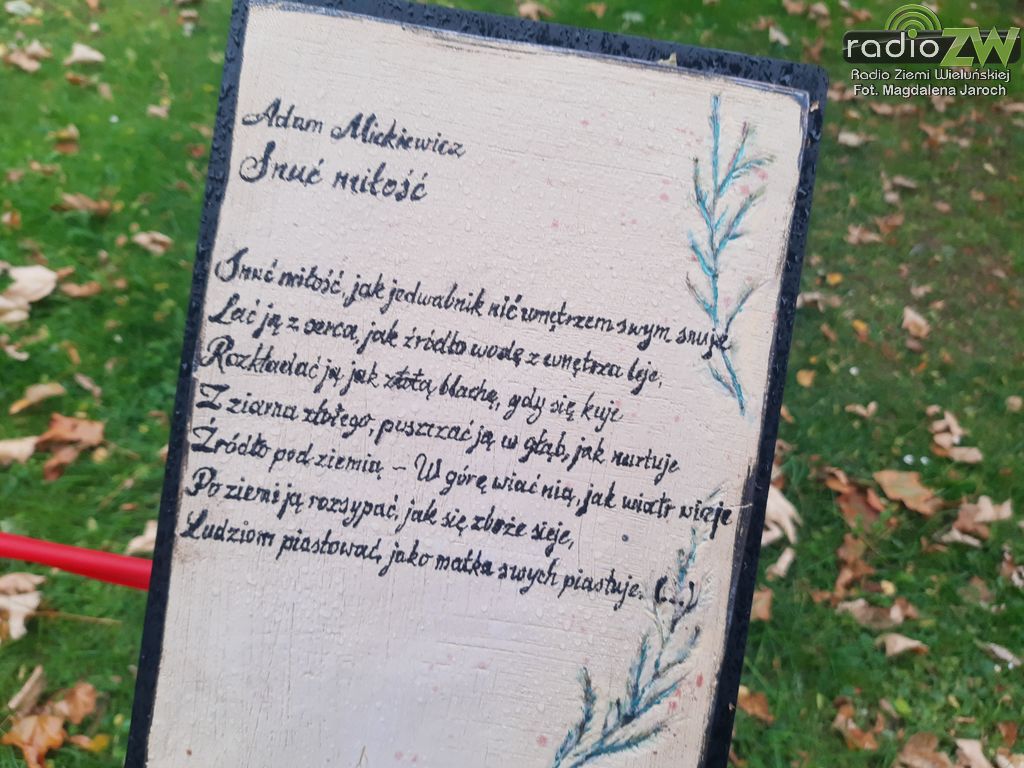 radioZW
Radio Ziemi Wieluńskiej
Fot. Magdalena Jaroch
Adam Mickiewicz
Snuć miłość
Snuć miłość, jak jedwabnik nić wnętrzem swym snuje
Lać ją z serca, jak źródło wodę z wnętrza leje,
Rozkładać ją jak złotą blachę, gdy się kuje
Z ziarna złotego, puszczać ją w głąb, jak nurtuje
Źródło pod ziemią – W górę wiać nią, jak wiatr wieje
Po ziemi ją rozsypać, jak się zboże sieje,
Ludziom piastować, jako matka swych piastuje. (...)